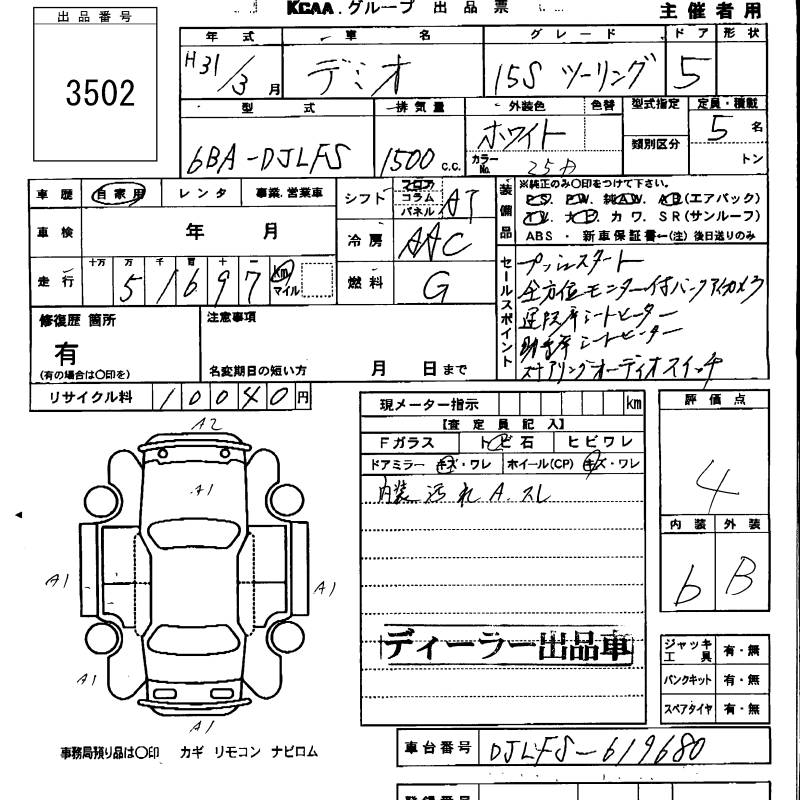 KCAA.グループ 出品票
主催者用
出品番号
3502
年式 車名 グレード ドア 形状
H31/3月 デミオ 15S ツーリング 5
型式 排気量 外装色 色替 型式指定 定員・積載
6BA-DJLFS 1500 c.c. ホワイト 類別区分 5名
カラーNo. 25D トン
車歴 自家用 レンタ 事業.営業車
シフト フロア コラム パネル AT
装備品
※純正のみ〇印をつけて下さい。
PS. PW. 純AW. AB(エアバック)
TV. ナビ カワ. SR(サンルーフ)
ABS・新車保証書←(注)後日送りのみ
車検 年 月
冷房 AAC
走行 十万 万 千 百 十 一
5 1 6 9 7 km マイル
燃料 G
セールスポイント
プッシュスタート
全方位モニター付バックアイカメラ
運転席シートヒーター
助手席シートヒーター
ステアリングオーディオスイッチ
修復歴 箇所
有
(有の場合は〇印を)
注意事項
名変期日の短い方 月 日まで
リサイクル料 10040円
現メーター指示 km
【査定員記入】
Fガラス トビ石 ヒビワレ
ドアミラー キズ・ワレ ホイール(CP) キズ・ワレ
内装 汚れ A.スレ
ディーラー出品車
評価点
4
内装 外装
b B
ジャッキ工具 有・無
パンクキット 有・無
スペアタイヤ 有・無
A2
A1
A1
A1
A1
A1
事務局預り品は〇印 カギ リモコン ナビロム
車台番号 DJLFS-619680
登録番号